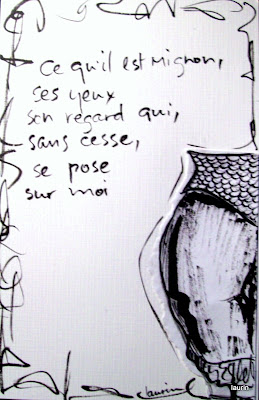 ce qu'il est mignon,
ses yeux
son regard qui,
sans cesse,
se pose
sur moi
laurin
laurin